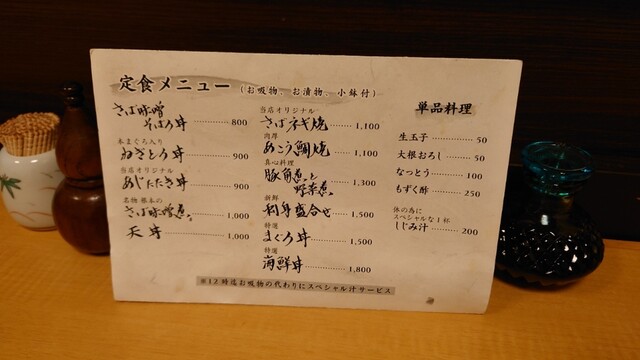 定食メニュー(お吸物、お漬物、小鉢付)
さば味噌
そぼろ丼 800
本まぐろ入り
ねぎとろ丼 900
当店オリジナル
あじたたき丼 900
名物 根本の
さば味噌煮 1,000
天丼 1,000
当店オリジナル
さばネギ焼 1,100
肉厚
あこう鯛焼 1,100
真心料理
豚角煮と
野菜煮 1,300
新鮮
刺身盛合せ 1,500
特選
まぐろ丼 1,500
特選
海鮮丼 1,800
単品料理
生玉子 50
大根おろし 50
なっとう 100
もずく酢 250
体の為に
スペシャルな1杯
しじみ汁 200
※12時迄お吸物の代わりにスペシャル汁サービス